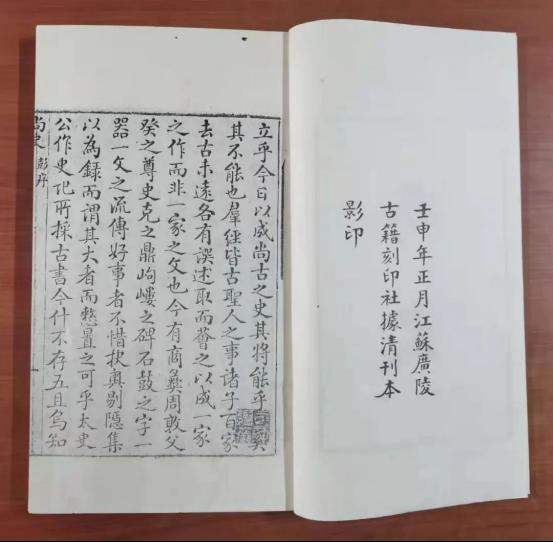 壬申年正月江蘇廣陵
古籍刻印社據清刊本
影印
立乎今日以成尚古之史其將能乎
其不能也羣經皆古聖人之事諸子百家
去古未遠各有譔述取而薈之以成一家
之作而非一家之文也今有商彝周敦父
癸之尊史克之鼎岣嶁之碑石鼓之字一
器一文之流傳好事者不惜抉奧剔隱集
以為錄而謂其大者而憖置之可乎太史
公作史記所採古書今什不存五且烏知
尚史 彭序